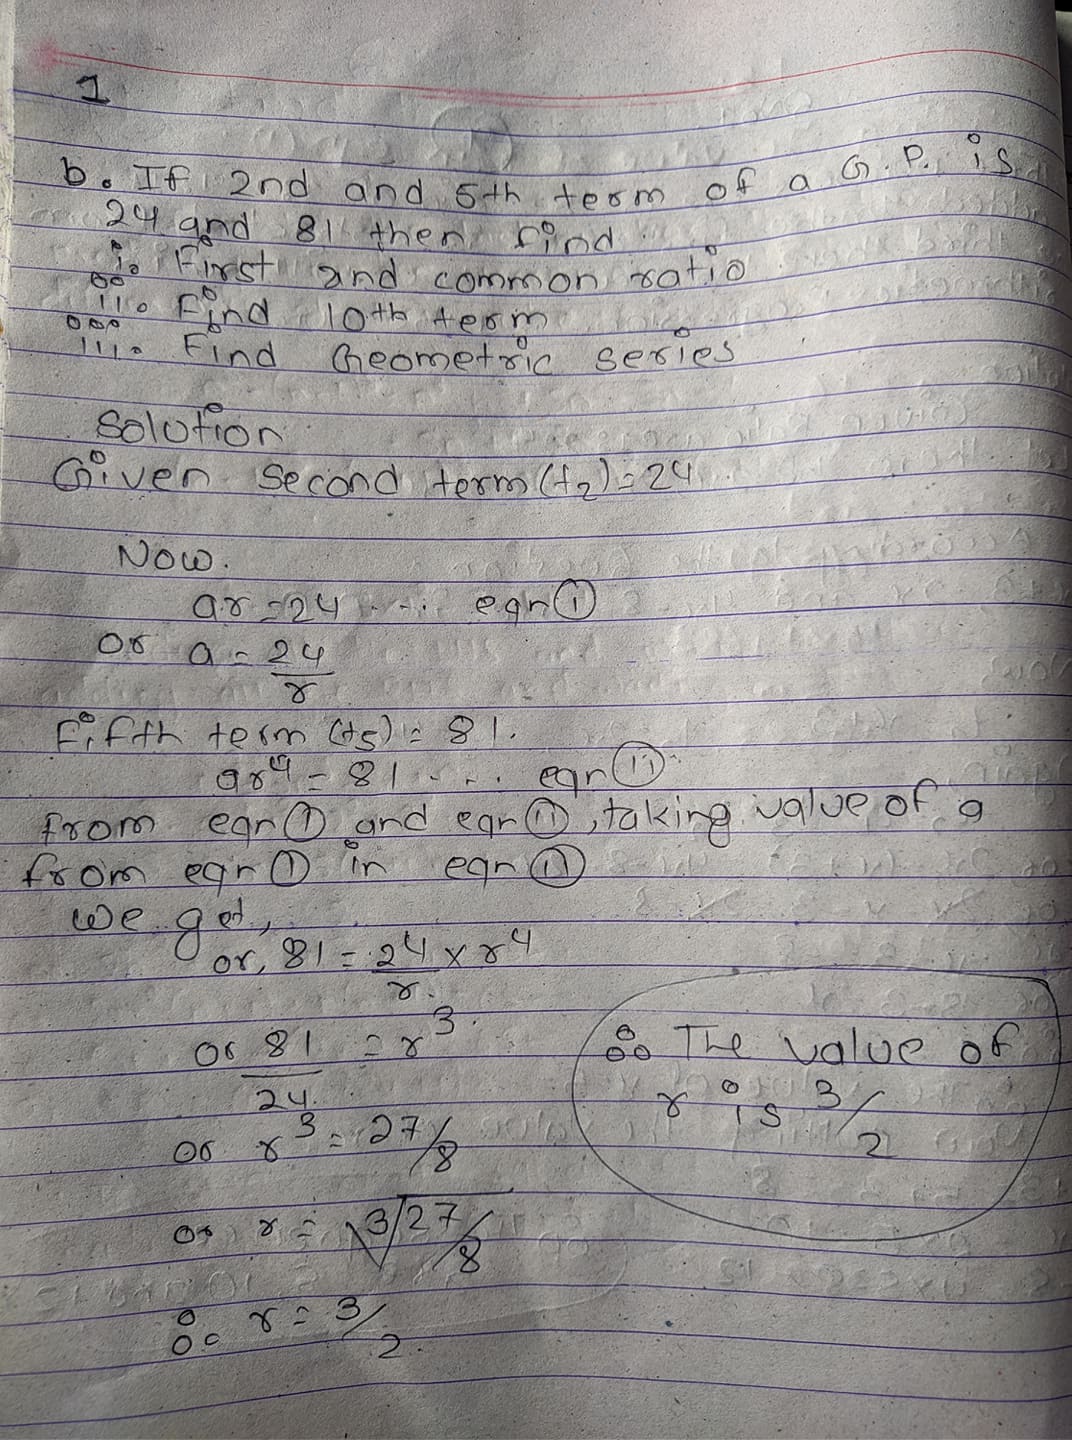 1
b. If 2nd and 5th term of a G.P. is
24 and 81 then find
i. First and common ratio
ii. Find 10th term
iii. Find Geometric series
Solution
Given Second term (t2) = 24
Now.
ar = 24 .... eqn (i)
or a = 24/r
Fifth term (t5) = 81.
ar^4 = 81 .... eqn (ii)
from eqn (i) and eqn (ii), taking value of a
from eqn (i) in eqn (ii)
we get,
or, 81 = 24/r × r^4
or 81/24 = r^3
or r^3 = 27/8
or r = ∛27/8
∴ r = 3/2
∴ The value of
r is 3/2